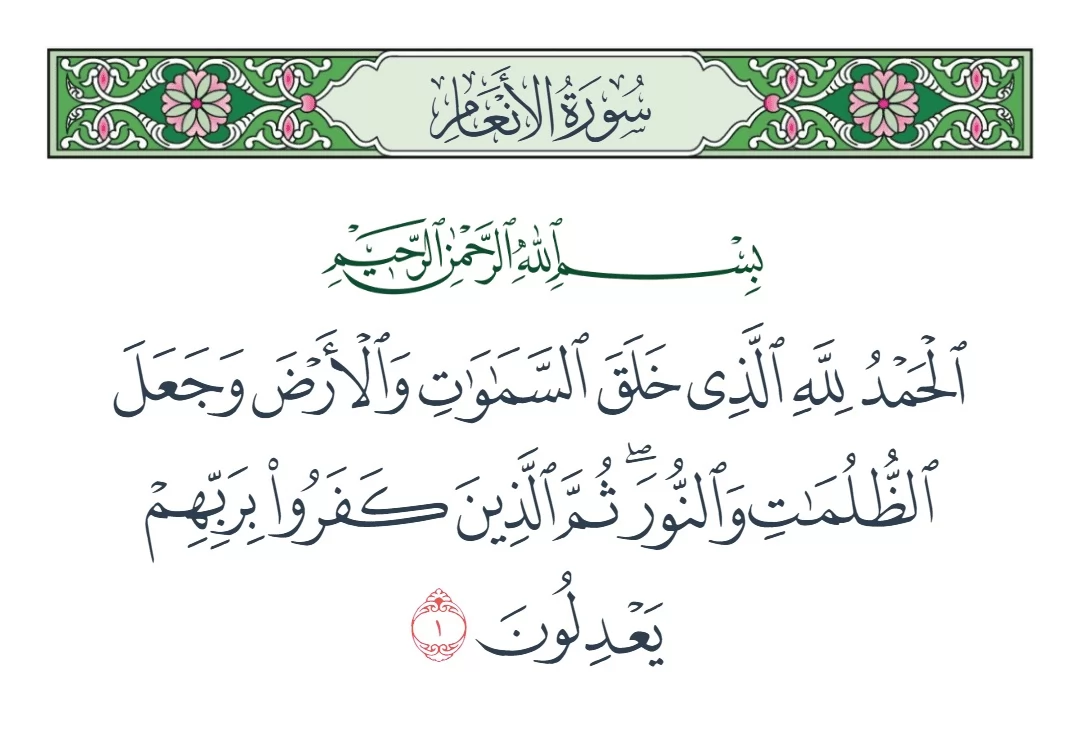 سُورَةُ الأَنْعَامِ
بِسْمِ ٱللَّهِ ٱلرَّحْمَٰنِ ٱلرَّحِيمِ
ٱلْحَمْدُ لِلَّهِ ٱلَّذِى خَلَقَ ٱلسَّمَٰوَٰتِ وَٱلْأَرْضَ وَجَعَلَ
ٱلظُّلُمَٰتِ وَٱلنُّورَ ۖ ثُمَّ ٱلَّذِينَ كَفَرُوا۟ بِرَبِّهِمْ
يَعْدِلُونَ ١